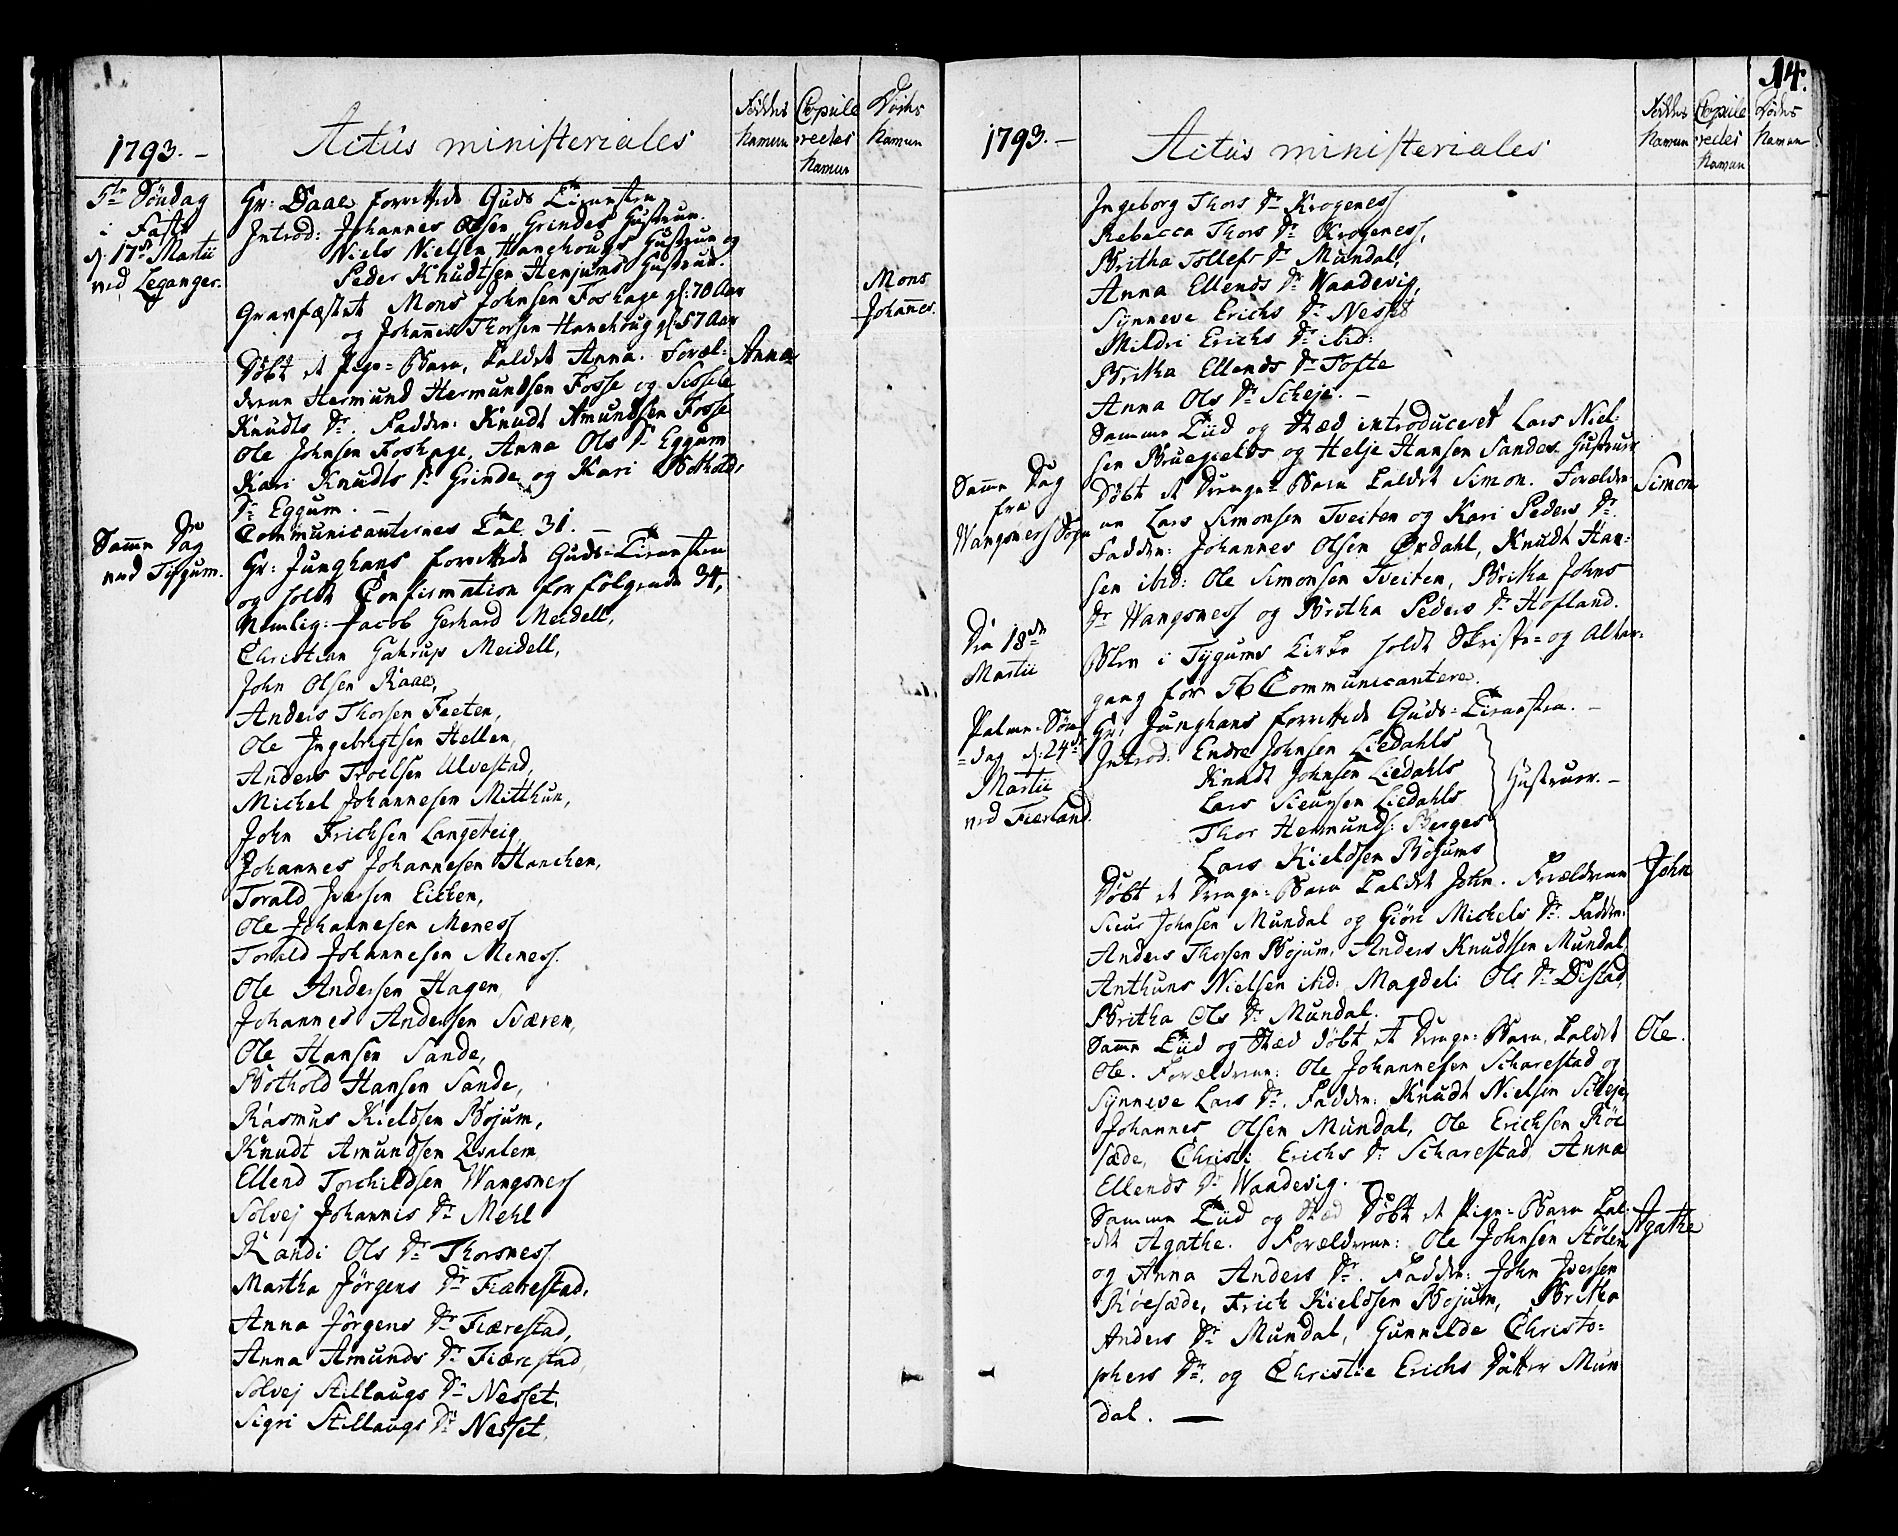 1793. —
Actus ministeriales
Føddes Navne
Copuleredes Navne
Dødes Navne
5te Søndag
i Faste
d. 17de Martii
ved Leganger.
Hr: Daae forrettede Guds Tienesten
Introd: Johannes Olsen Grindes Hustrue.
Niels Nielsen Hanehougs Hustrue og
Peder Knudtsen Henjums Hustrue.
Gravfæstet Mons Johnsen Foshage gl: 70 Aar
og Johannes Thorsen Hanehoug gl. 57 Aar
Mons
Johannes.
Døbt et Pige-Barn, kaldet Anna. Foræl-
Anna
drene Hermund Hermundsen Fosse og Sissele
Knudts Dr. Faddere: Knudt Amundsen Fosse
Ole Johnsen Foshage, Anna Ols Dr Eggum
Kari Knudts Dr Grinde og Kari Botholds
Dr Eggum. —
Communicanternes Tal. 31. —
Samme Dag
ved Tygum.
Hr: Junghans forrettede Guds-Tienesten
og holdt Confirmation for følgende 34,
Nemlig: Jacob Gerhard Meidell,
Christian Gahrup Meidell,
John Olsen Raae,
Anders Thorsen Feeten,
Ole Ingebrigtsen Hellen,
Anders Troelsen Ulvestad,
Michel Johannesen Mitthun,
John Frichsen Langeteig
Johannes Johannesen Hanchen,
Torald Iversen Eithen,
Ole Johannesen Meness
Torald Johannesen Meness.
Ole Andersen Hagen
Johannes Andersen Sværen,
Ole Hansen Sande,
Bothold Hansen Sande,
Rasmus Kieldsen Bojum,
Knudt Amundsen
Ellend Torchildsen Wangsness
Solvej Johannis Dr Mehl
Randi Ols Dr Thorsness
Martha Jørgens Dr Fiærestad,
Anna Jørgens Dr Fiærestad,
Anna Amunds Dr Fiærestad,
Solvej Stillaugs Dr Nesset,
Sigri Stillaugs Dr Nesset.
14.
1793. —
Actus ministeriales
Føddes Navne
Copuleredes Navne
Dødes Navne
Ingeborg Thors Dr Krogeness
Rebecca Thors Dr Krogeness,
Britha Tollefs Dr Mundal,
Anna Ellends Dr Waadevig,
Synneve Erichs Dr Nesset
Mildri Erichs Dr ibid:
Britha Ellends Dr Tofte
Anna Ols Dr Scheje. —
Samme Tiid og Stæd introduceret Lars Niel-
sen Bruegields og Helje Hansen Sandes Hustruer
Samme Dag
fra
Wangsness Sogn
Døbt et Drenge-Barn kaldet Simon. Forældre-
Simon
ne Lars Simonsen Tveiten og Kari Peders Dr.
Faddere: Johannes Olsen Ørdahl, Knudt Han-
sen ibid: Ole Simonsen Tveiten, Britha Johns
Dr Wangsness og Britha Peders Dr Hofland.
Den 18de
Martii
Blev i Tygums Kirke holdt Skrifte- og Alter-
gang for 76 Communicantere.
Palme-Søn-
dag d. 24de
Martii
ved Fierland.
Hr: Junghans forrettede Guds-Tienesten. —
Introd: Endre Johnsen Liedahls
Knudt Johnsen Liedahls
Lars Sieursen Liedahls
Thor Hermunds: Berges
Lars Kieldsen Bojums
Hustruer. —
Døbt et Drenge-Barn kaldet John. Forældrene
John
Sieur Johnsen Mundal og Giøri Michels Dr. Faddere:
Anders Thorsen Bojum, Anders Knudtsen Mundal,
Anthuns Nielsen ibid: Magdeli Ols Dr Distad,
Britha Ols Dr Mundal.
Samme Tiid og Stæd døbt et Drenge-Barn, kaldet
Ole.
Ole. Forældrene: Ole Johannesen Scharestad og
Synneve Lars Dr. Faddere: Knudt Nielsen Scheje,
Johannes Olsen Mundal, Ole Erichsen Röe
sæde, Christi Erichs Dr Scharestad, Anna
Ellends Dr Waadevig. —
Samme Tiid og Stæd Døbt et Pige-Barn kal-
Agathe
det Agathe. Forældrene: Ole Johnsen Stølen
og Anna Anders Dr. Faddere: John Iversen
Röesæde, Frich Kieldsen Bojum, Britha
Anders Dr Mundal, Gunnilde Christo-
phers Dr. og Christie Erichs Datter Mun
dal. —